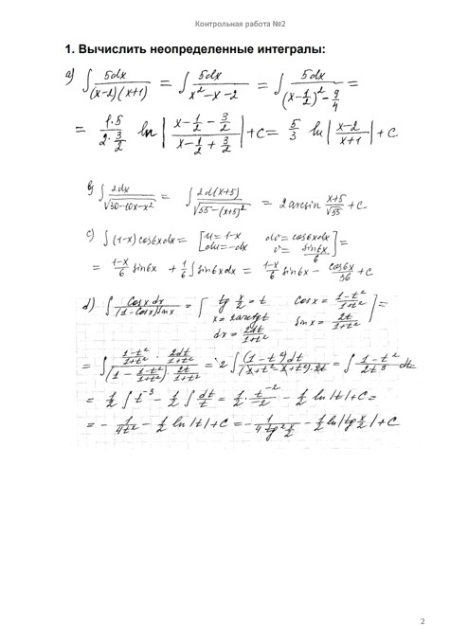 Контрольная работа №2
1. Вычислить неопределенные интегралы:
a) ∫ 5dx/((x-2)(x+1)) = ∫ 5dx/(x²-x-2) = ∫ 5dx/((x-1/2)²-9/4) =
= 1·5/(2·3/2) ln|(x-1/2-3/2)/(x-1/2+3/2)|+c = 5/3 ln|(x-2)/(x+1)|+c
b) ∫ 2dx/√(30-10x-x²) = ∫ 2d(x+5)/√(55-(x+5)²) = 2arcsin (x+5)/√55 + c
c) ∫(1-x)cos6xdx = [u=1-x dv=cos6xdx
du=-dx v=sin6x/6] =
= (1-x)/6 sin6x + 1/6 ∫sin6xdx = (1-x)/6 sin6x - cos6x/36 + c
d) ∫ cosx dx/((1-cosx)sinx) = [tg x/2 = t cosx = (1-t²)/(1+t²)
x = 2arctgt sinx = 2t/(1+t²)
dx = 2dt/(1+t²)] =
= ∫ ((1-t²)/(1+t²) · 2dt/(1+t²))/((1-(1-t²)/(1+t²)) 2t/(1+t²)) = 2∫ (1-t²)dt/((1+t²-1+t²)·2t) = ∫ (1-t²)/(2t³) dt
= 1/2 ∫ t⁻³ - 1/2 ∫ dt/t = 1/2 · t⁻²/-2 - 1/2 ln|t|+c =
= - 1/(4t²) - 1/2 ln|t|+c = - 1/(4tg² x/2) - 1/2 ln|tg x/2|+c
2